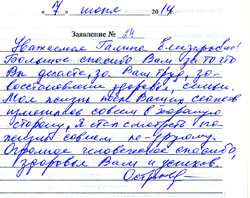 « 7 » июня 2014
Заявление № 24
Уважаемая Галина Елизаровна!
Большое спасибо Вам за то что
Вы делаете, за Ваш труд, за
восстановление здоровья, силы.
Моя жизнь после Ваших сеансов
изменилась совсем в хорошую
сторону, я стал смотреть на
жизнь совсем по-другому.
Огромное человеческое спасибо,
здоровья Вам и успехов.